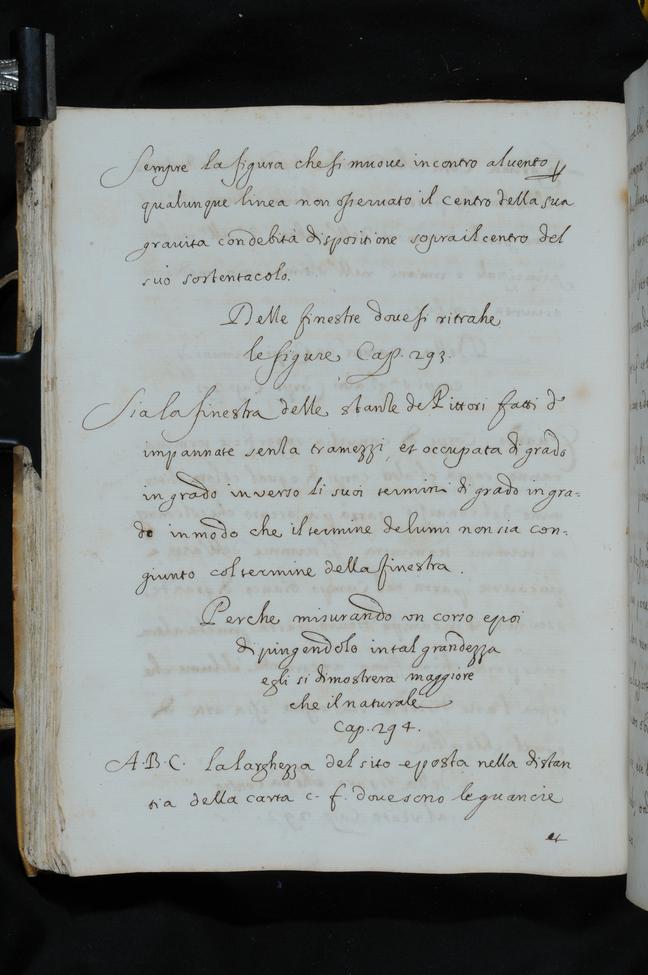 Sempre la figura che si muove incontro al vento p
qualunque linea non osseruato il centro della sua
grauita con debita dispositione sopra il centro del
suo sostentacolo.
Delle finestre doue si ritrahe
le figure Cap. 293.
Sia la finestra delle stanze de Pittori fatti d'
impannate senza tramezzi, et occupata di grado
in grado inverso li suoi termini di grado in gra=
do in modo che il termine de lumi non sia con=
giunto col termine della finestra.
Perche misurando un corso e poi
dipingendolo in tal grandezza
egli si dimostrera maggiore
che il naturale
Cap. 294.
A. B. C. la larghezza del sito e posta nella distan
tia della carta c. f. doue sono le guancie
et